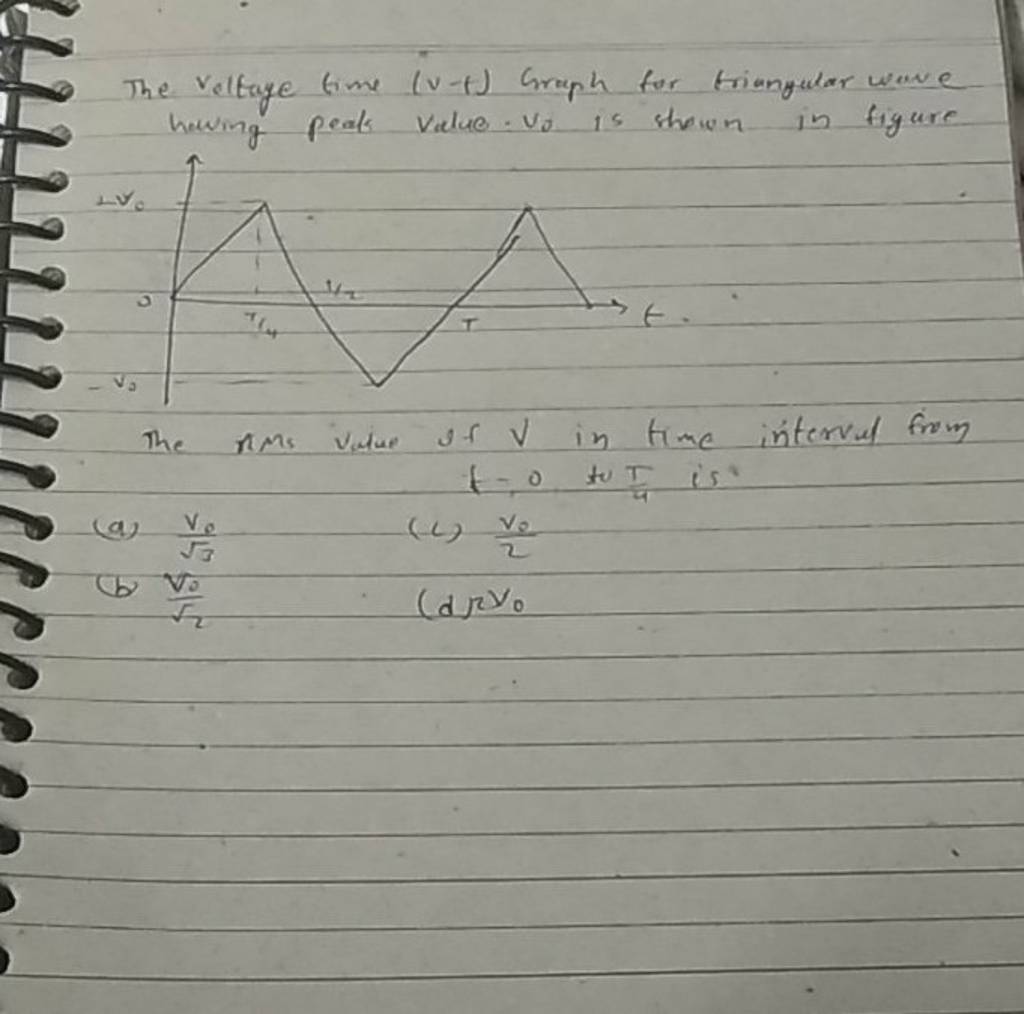 The Voltage time (v-t) Graph for triangular wave
having peak Value. V0 is shown in figure
+V0
0
T/4
T/2
T
t.
-V0
The RMS Value of V in time interval from
t = 0 to T/4 is
(a) V0/√3 (c) V0/2
(b) V0/√2